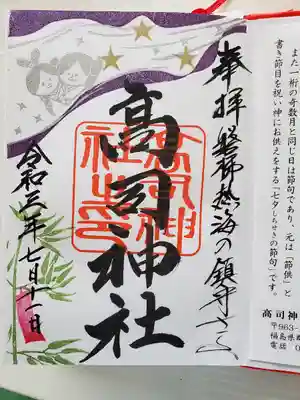 また一桁の奇数月と同じ日は節句であり、元は「節供」と
書き節目を祝い神にお供えをする「七夕しちせきの節句」です。
高司神
〒963-
福島県
電話
奉拝 磐梯熱海の鎮守さま
高司神社
高司神社之印
令和三年七月十一日